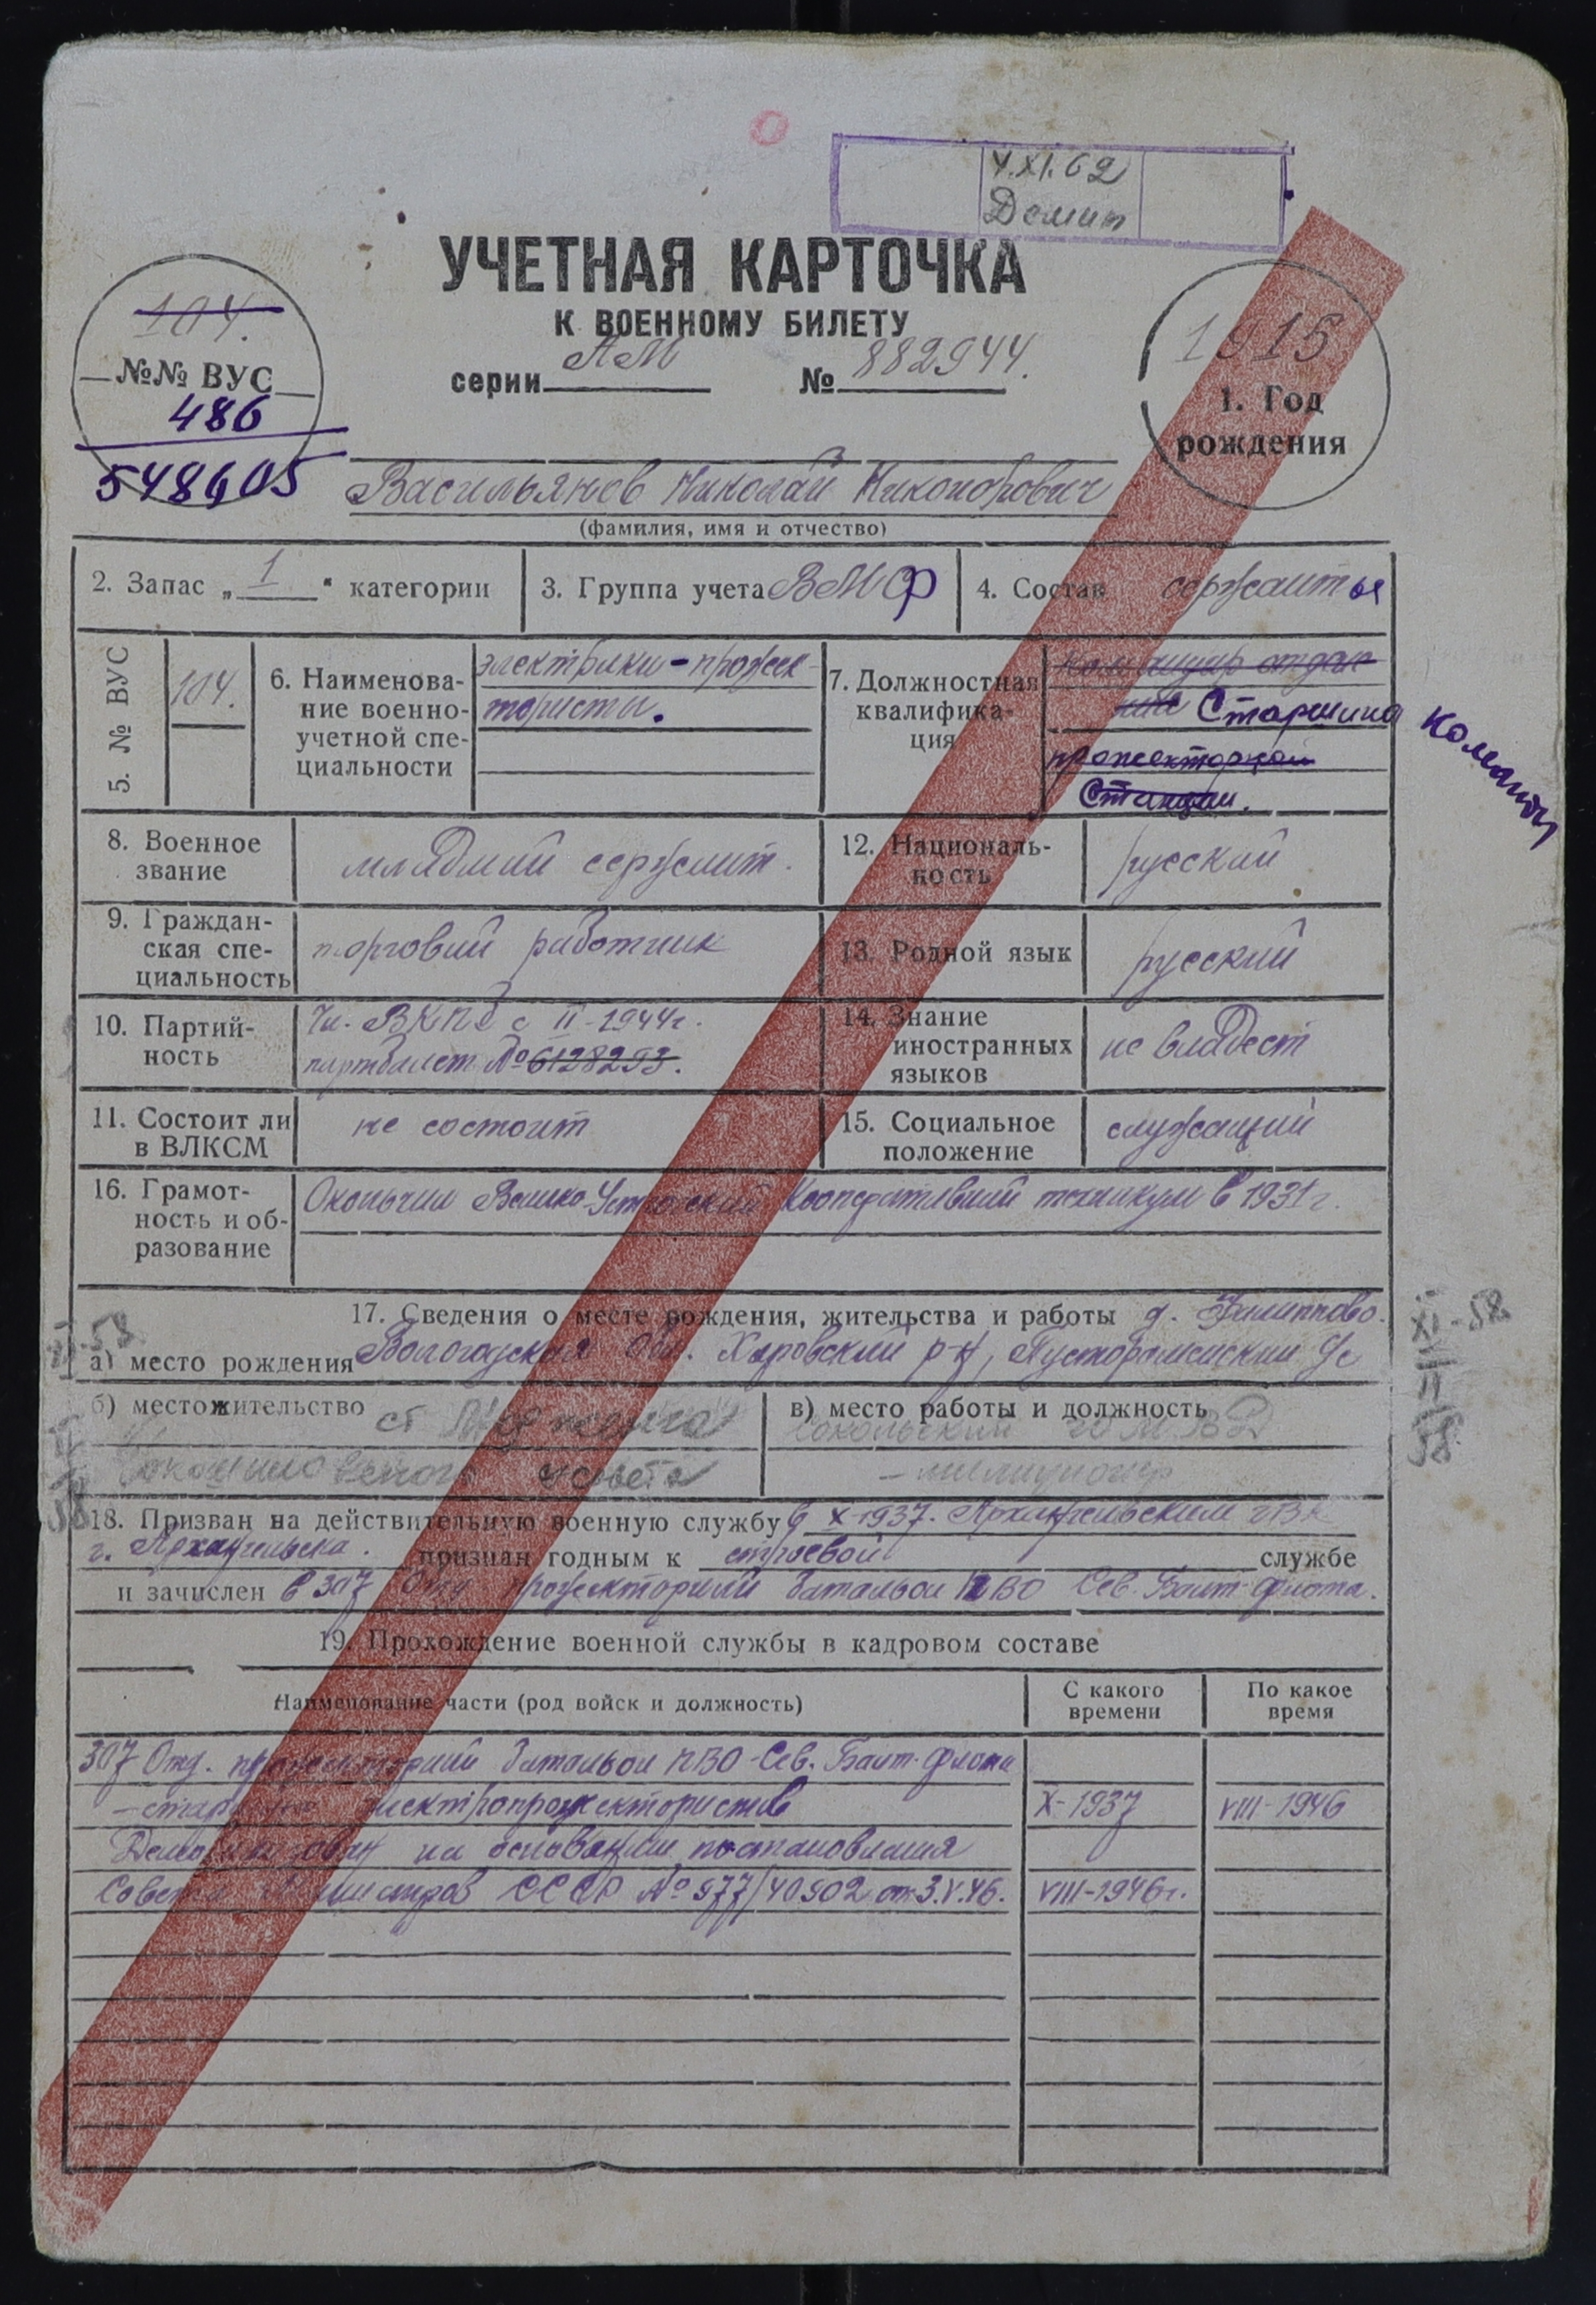 4.XI.62
УЧЕТНАЯ КАРТОЧКА
К ВОЕННОМУ БИЛЕТУ
серии АМ № 882944.
104.
№№ ВУС
486
1915
1. Год
рождения
Васильянов Николай Никонорович
(фамилия, имя и отчество)
2. Запас „ 1 “ категории
3. Группа учета ВМФ
4. Состав сержанты
5. № ВУС
104.
6. Наименова-
ние военно-
учетной спе-
циальности
электрики-прожек-
тористы.
7. Должностная
квалифика-
ция
командир отделе-
ния Старшина команды
прожекторной
Станции.
8. Военное
звание
младший сержант.
12. Националь-
ность
русский
9. Граждан-
ская спе-
циальность
торговый работник
13. Родной язык
русский
10. Партий-
ность
Чл. ВКПб с II-1944г.
партбилет № 6128293.
14. Знание
иностранных
языков
не владеет
11. Состоит ли
в ВЛКСМ
не состоит
15. Социальное
положение
служащий
16. Грамот-
ность и об-
разование
Окончил Велико-Устюгский Кооперативный техникум в 1931г.
17. Сведения о месте рождения, жительства и работы д. Филиппово.
а) место рождения Вологодская обл. Харовский р-н,
XI-58
II
58
б) местожительство ст
совета
в) место работы и должность
Сокольский МВД
-милиционер
18. Призван на действительную военную службу в X-1937. Архангельским ГВК
г. Архангельска. признан годным к строевой службе
и зачислен в 307 Отд прожекторный батальон ПВО Сев. Балт-флота.
19. Прохождение военной службы в кадровом составе
Наименование части (род войск и должность)
С какого
времени
По какое
время
307 Отд. прожекторный батальон ПВО-Сев. Балт-флота
-старшина электропрожектористов X-1937 VIII-1946
Демобилизован на основании постановления
Совета Министров СССР № 977/40902 от 3.V.46. VIII-1946г.